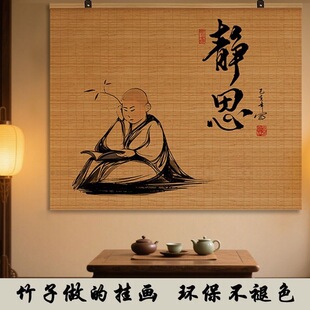 静思
竹子做的挂画 环保不褪色